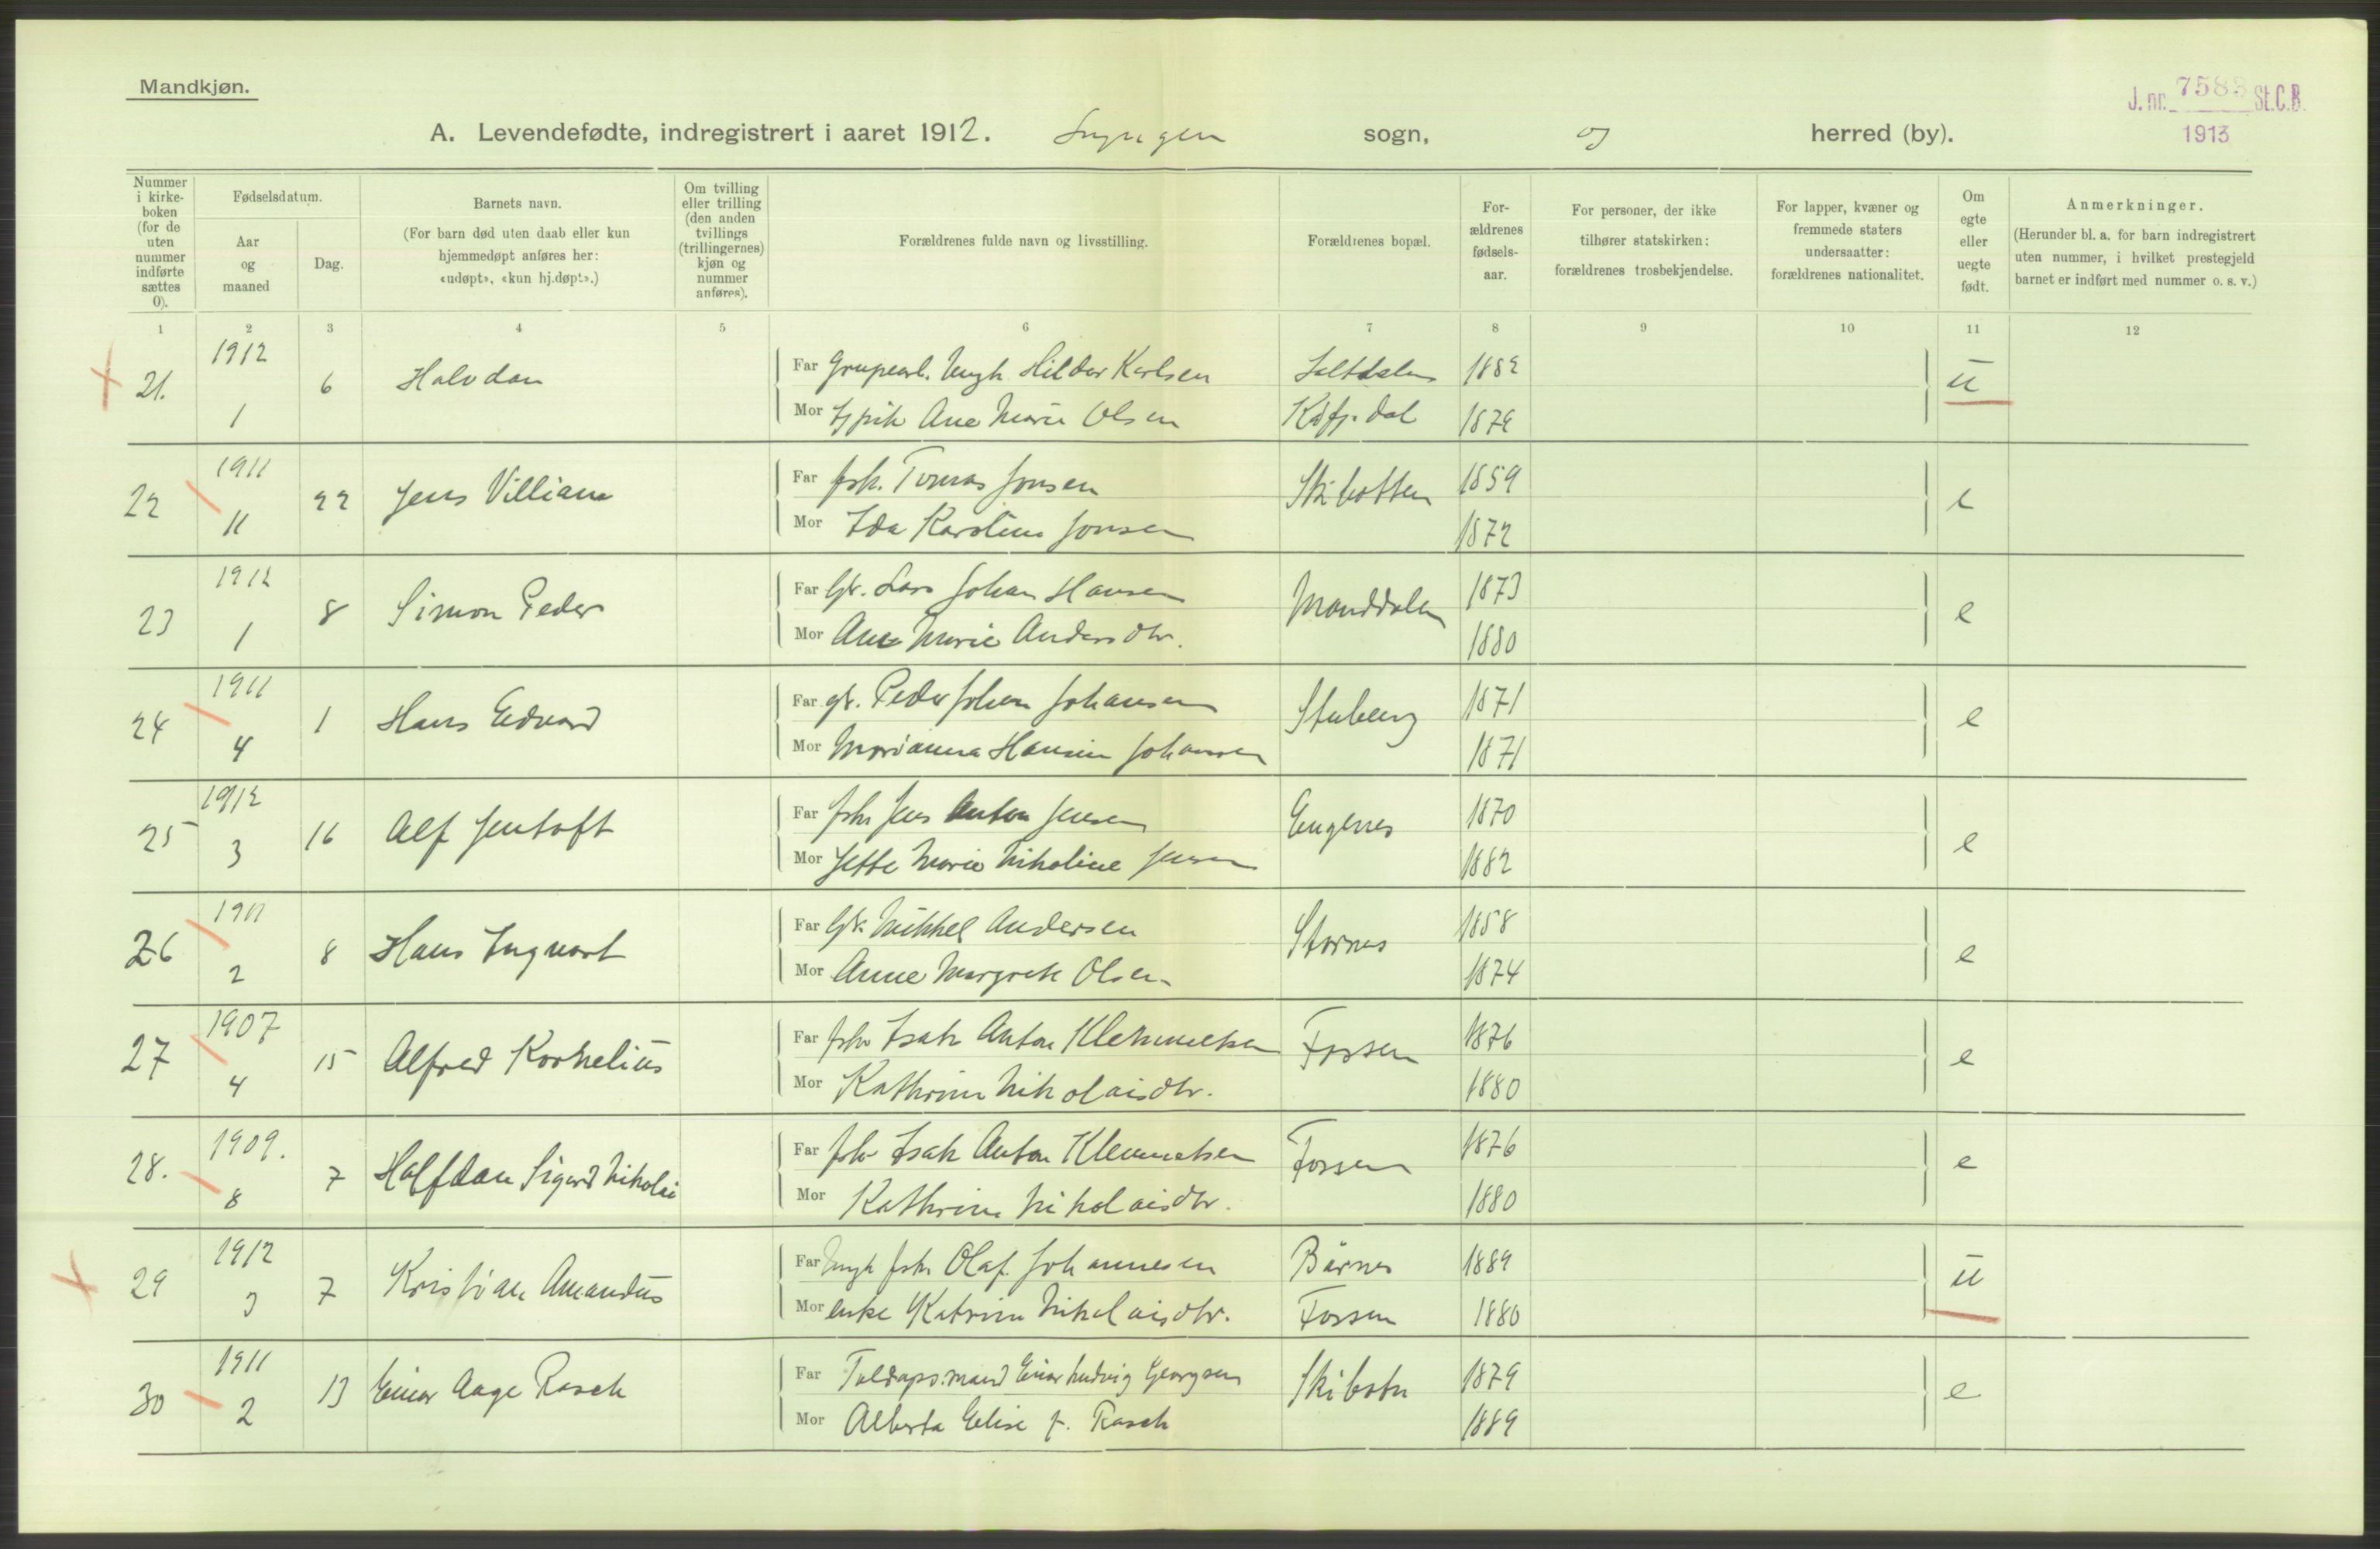 Mandkjøn.
J. nr. 758 St.C.B.
1913
A. Levendefødte, indregistrert i aaret 1912. Lyngen sogn, og herred (by).
Nummer i kirkeboken (for de uten nummer indførte sættes 0).
Fødselsdatum.
Aar og maaned
Dag.
Barnets navn.
(For barn død uten daab eller kun hjemmedøpt anføres her: «udøpt», «kun hj.døpt».)
Om tvilling eller trilling (den anden tvillings (trillingernes) kjøn og nummer anføres).
Forældrenes fulde navn og livsstilling.
Forældrenes bopæl.
Forældrenes fødselsaar.
For personer, der ikke tilhører statskirken: forældrenes trosbekjendelse.
For lapper, kvæner og fremmede staters undersaatter: forældrenes nationalitet.
Om egte eller uegte født.
Anmerkninger.
(Herunder bl. a. for barn indregistrert uten nummer, i hvilket prestegjeld barnet er indført med nummer o. s. v.)
1 2 3 4 5 6 7 8 9 10 11 12
21. 1912 1 6 Halvdan
Far Grupearb. Ungk. Hildor Karlsen Saltdalen 1882 u
Mor Ane Marie Olsen Kåfj.dal
22 1911 11 22 Jens Villiam
Far fsk. Tomas Jonsen Skibotten 1859 e
Mor Ida Karoline Jonsen 1872
23 1912 1 8 Simon Peder
Far Gbr. Lars Johan Hansen Manddalen 1873 e
Mor Ane Marie Andersdtr. 1880
24 1911 4 1 Hans Edvard
Far gbr. Peder Johan Johansen 1871 e
Mor Marianna Hansine Johansen 1871
25 1912 3 16 Alf Jentoft
Far fskr Jens Anton Jensen Engenes 1870 e
Mor Jette Marie Nikoline Jensen 1882
26 1911 2 8 Hans Ingvart
Far Gbr. Mikkel Andersen Stornes 1858 e
Mor Anne Margrete Olsen 1874
27 1907 4 15 Alfred Kornelius
Far fskr Isak Anton Klemmetsen Fossen 1876 e
Mor Kathrine Nikolaisdtr. 1880
28. 1909. 8 7 Halfdan Sigurd Nikolai
Far fskr Isak Anton Klemmetsen Fossen 1876 e
Mor Kathrine Nikolaisdtr. 1880
29 1912 3 7 Kristian Amandus
Far Ungk fskr Olaf Johannesen 1889 u
Mor enke Katrine Nikolaisdtr. Fossen 1880
30 1911 2 13 Einar Aage Rasch
Far Toldops.mand Einar Ludvig Georgsen Skibotn 1879 e
Mor Alberta Elise f. Rasch 1889